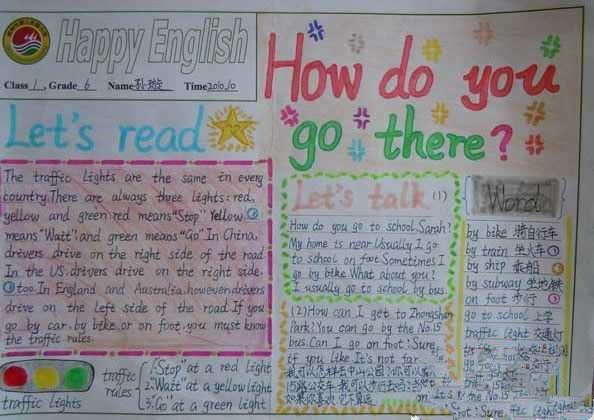 Happy English
Class 1, Grade 6 Name 孙璇 Time 2010.10
How do you
go there?
Let's read
The traffic lights are the same in every
country. There are always three lights: red,
yellow and green. red means "Stop" Yellow
means "Wait", and green means "Go" In China,
drivers drive on the right side of the road
In the US. drivers drive on the right side.
too. In England and Australia, however. drivers
drive on the left side of the road. If you
go by car. by bike or on foot. you must know
the traffic rules.
traffic lights
traffic rules
1: "Stop" at a red light
2: "Wait" at a yellow light
3: "Go" at a green light
Let's talk (1)
How do you go to school, Sarah?
My home is near. Usually I go
to school on foot. Sometimes I
go by bike. What about you?
I usually go to school by bus.
(2) How can I get to ZhongShan
Park? You can go by the No.15
bus. Can I go on foot? Sure,
if you like. It's not far.
我可以怎样去中山公园?你可以乘
15路公交车. 我可以步行去吗?当然
如果你喜欢
Word
by bike 骑自行车
by train 坐火车
by ship 乘船
by subway 坐地铁
on foot 步行
go to school 上学
traffic light 交通灯